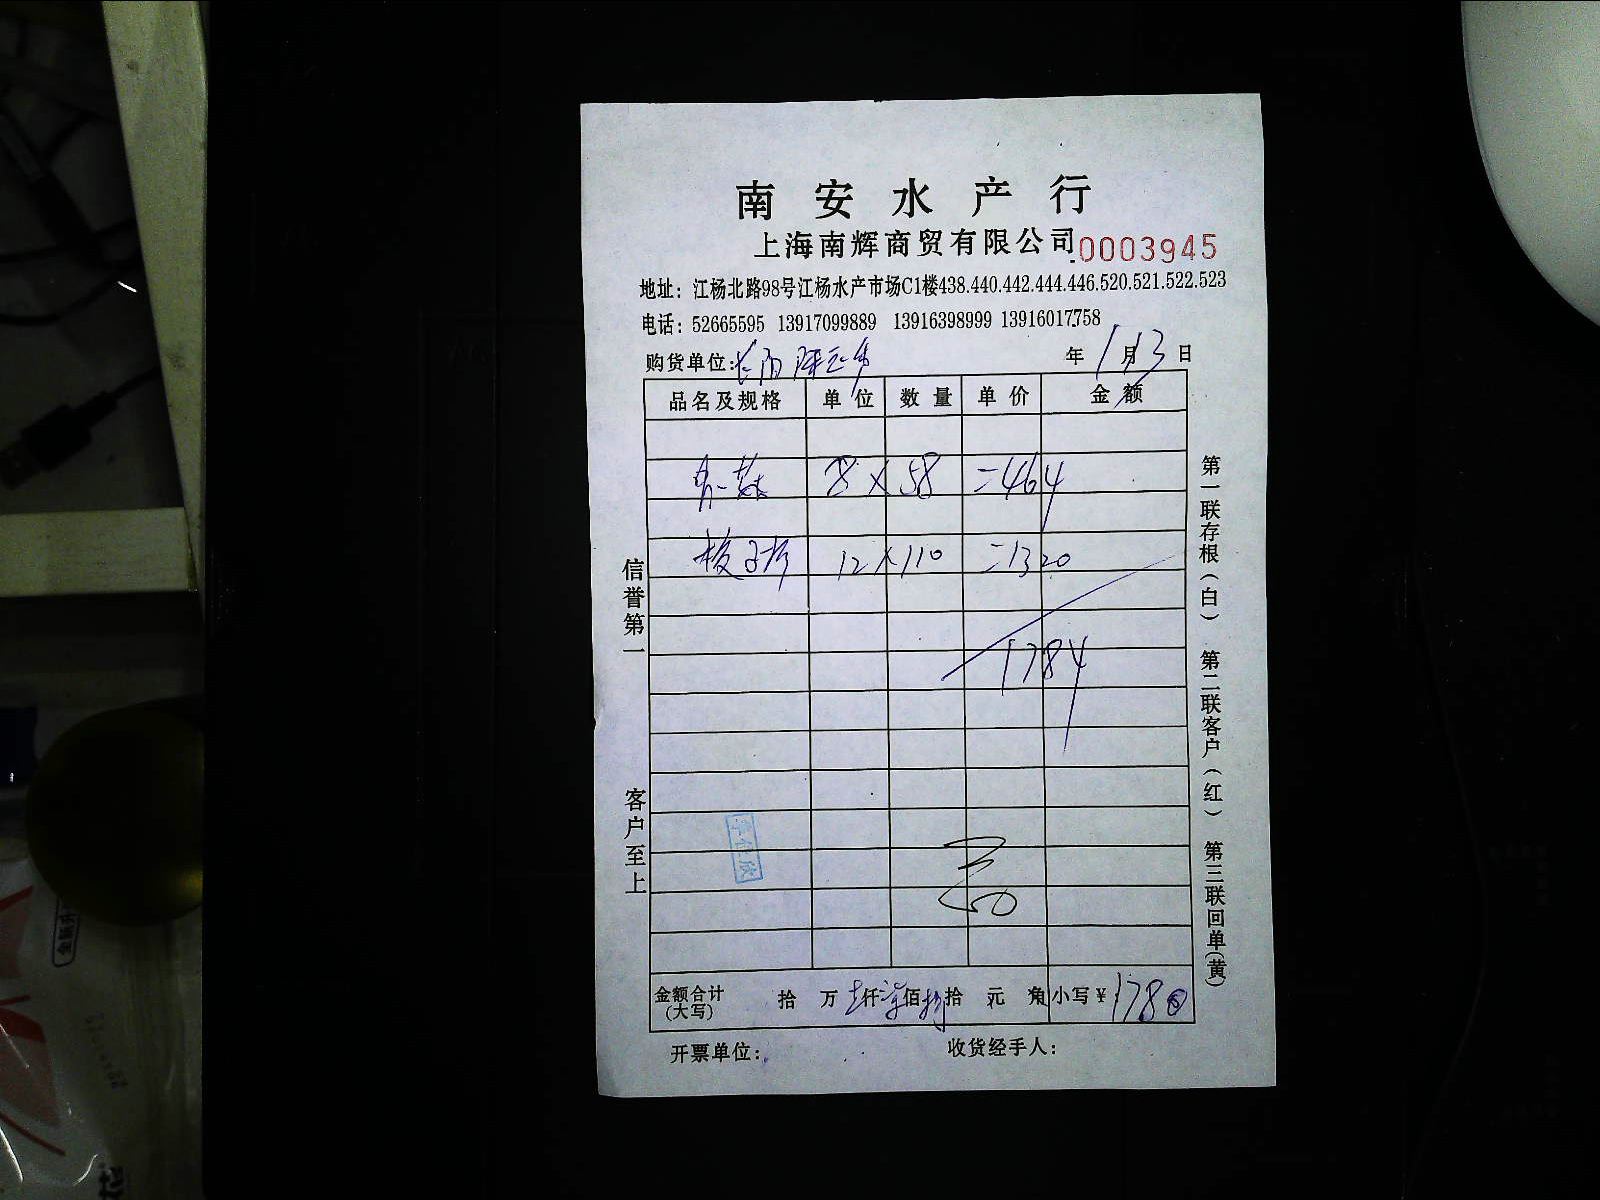 南安水产行
上海南辉商贸有限公司 0003945
地址：江杨北路98号江杨水产市场C1楼438.440.442.444.446.520.521.522.523
电话：52665595 13917099889 13916398999 13916017758
购货单位： 年 1月13日
品名及规格 单位 数量 单价 金额
8 × 58 =464
12 × 110 =1320
1784
金额合计（大写） 拾 万 仟 佰 拾 元 角 小写￥：1780
开票单位： 收货经手人：
信誉第一 客户至上
第一联存根（白） 第二联客户（红） 第三联回单（黄）